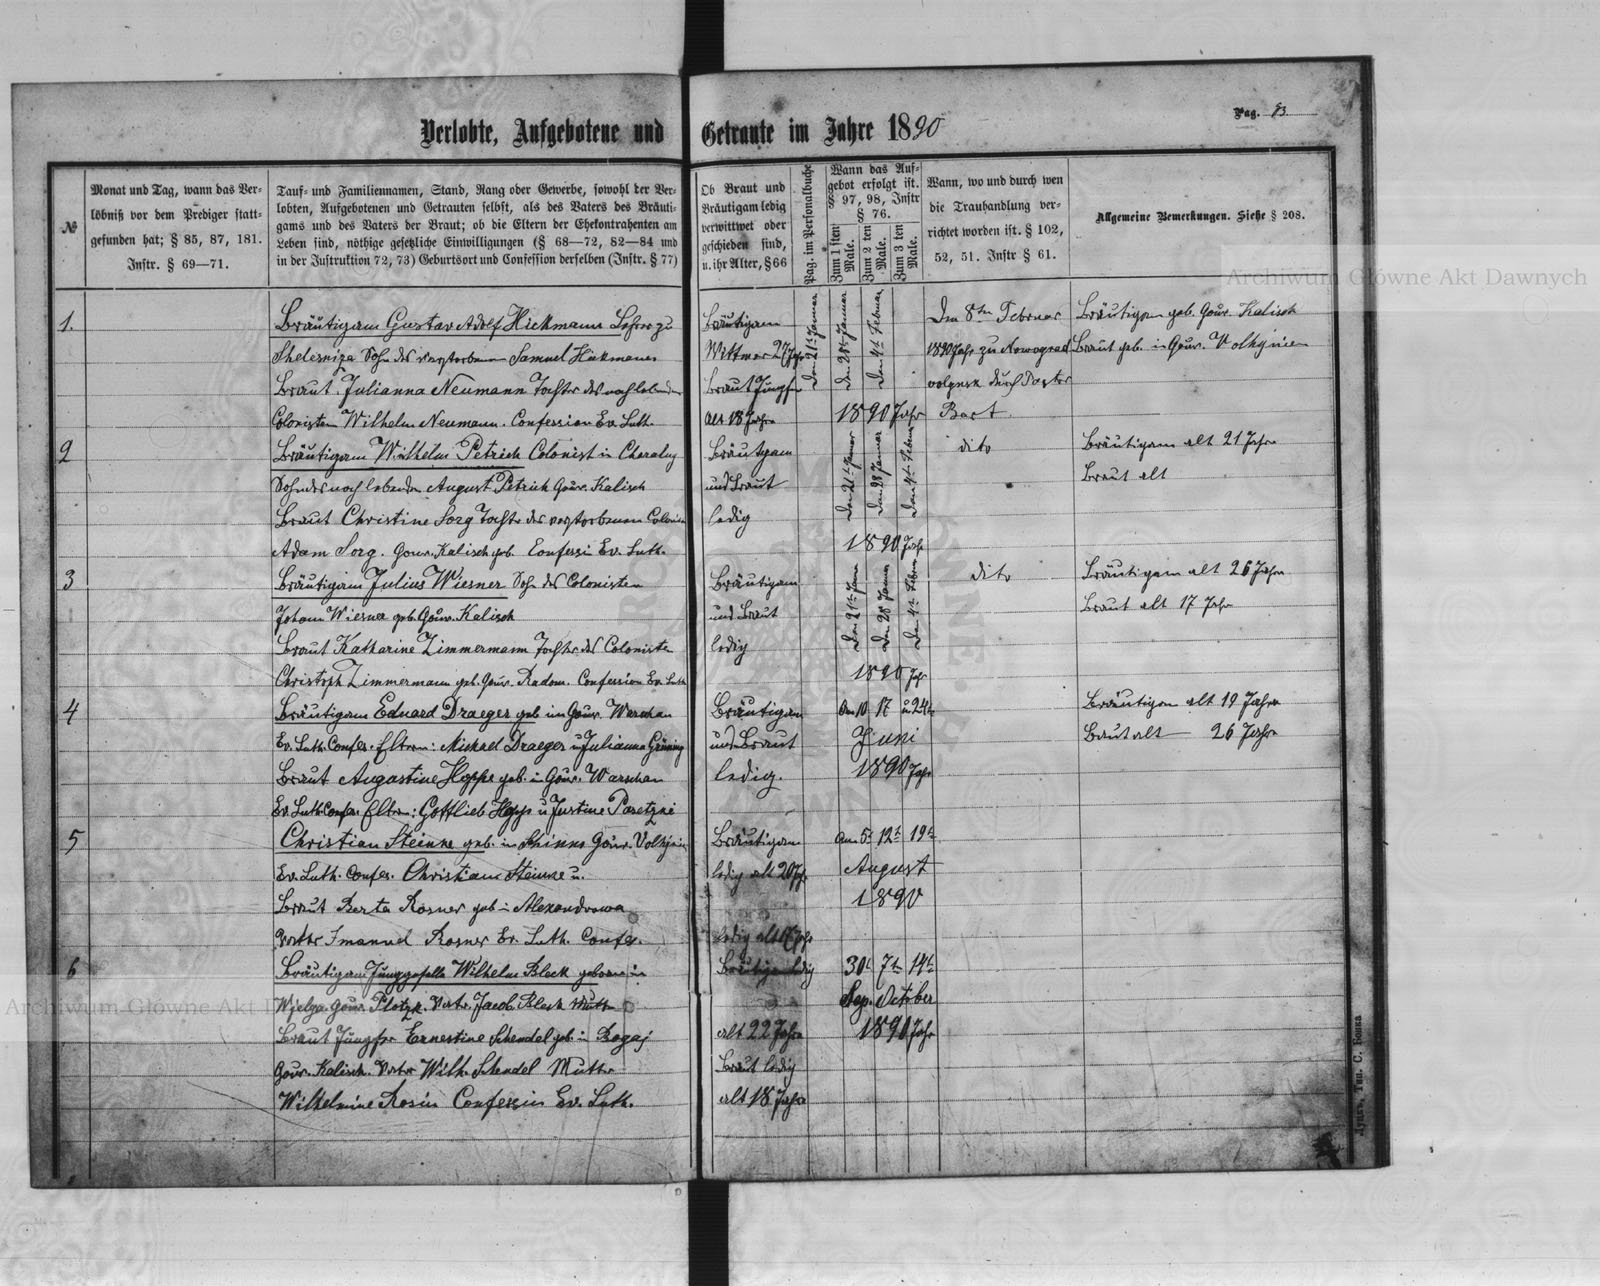 Pag. 93
Verlobte, Aufgebotene und Getraute im Jahre 1890
№
Monat und Tag, wann das Ver-
löbniß vor dem Prediger statt-
gefunden hat; § 85, 87, 181.
Instr. § 69—71.
Tauf- und Familiennamen, Stand, Rang oder Gewerbe, sowohl der Ver-
lobten, Aufgebotenen und Getrauten selbst, als des Vaters des Bräuti-
gams und des Vaters der Braut; ob die Eltern der Ehekontrahenten am
Leben sind, nöthige gesetzliche Einwilligungen (§ 68—72, 82—84 und
in der Instruktion 72, 73) Geburtsort und Confession derselben (Instr. § 77)
Ob Braut und
Bräutigam ledig
verwittwet oder
geschieden sind,
u. ihr Alter, § 66
Pag. im Personalbuche
Wann das Auf-
gebot erfolgt ist.
§ 97, 98, Instr
§ 76.
Zum 1 sten Male.
Zum 2 ten Male.
Zum 3 ten Male.
Wann, wo und durch wen
die Trauhandlung ver-
richtet worden ist. § 102,
52, 51. Instr § 61.
Allgemeine Bemerkungen. Siehe § 208.
1.
Bräutigam Gustav Adolf Hickmann Lehrer zu
Sohn des verstorbenen Samuel Hickmann
Braut Julianna Neumann Tochter des noch lebenden
Colonisten Wilhelm Neumann. Confession Ev. Luth.
Bräutigam
Wittwer 27 Jahr
Braut Jungfer
alt 18 Jahre
Den 21t Januar
Den 28t Januar
Den 4t Februar
1890 Jahr
Den 8ten Februar
1890 Jahr zu Nowograd
wolynsk durch Pastor
Bräutigam geb. Gouv. Kalisch
Braut geb. in Gouv. Volhynien
2
Bräutigam Wilhelm Petrich Colonist in
Sohn des noch lebenden August Petrich Gouv. Kalisch
Braut Christine Sorg Tochter des verstorbenen Colonisten
Adam Sorg. Gouv. Kalisch geb. Confession Ev. Luth.
Bräutigam
und Braut
ledig
Den 21t Januar
Den 28 Januar
Den 4t Februar
1890 Jahr
dito
Bräutigam alt 21 Jahre
Braut alt
3
Bräutigam Julius Wiesner Sohn des Colonisten
Johann Wiesner geb. Gouv. Kalisch
Braut Katharine Zimmermann Tochter des Colonisten
Christoph Zimmermann geb. Gouv. Radom. Confession Ev. Luth
Bräutigam
und Braut
ledig
Den 21t Januar
Den 28 Januar
Den 4t Februar
1890 Jahr
dito
Bräutigam alt 26 Jahre
Braut alt 17 Jahr
4
Bräutigam Eduard Draeger geb. im Gouv. Warschau
Ev. Luth. Confes. Eltern: Michael Draeger u Julianna Grüning
Braut Augustine Hoppe geb. in Gouv. Warschau
Ev. Luth Confes. Eltern: Gottlieb Hoppe u Justine
Bräutigam
und Braut
ledig.
Am 10 17 u. 24t
Juni
1890 Jahr
Bräutigam alt 19 Jahre
Braut alt 26 Jahre
5
Christian Steinke geb. in Gouv. Volhynien
Ev. Luth. Confes. Christian Steinke u.
Braut Berta Rosner geb. in Alexandrowa
Vater Imanuel Rosner Ev. Luth. Confes.
Bräutigam
ledig alt 20 Jhr
ledig alt 17 Jahr
Am 5t 12t 19t
August
1890
6
Bräutigam Junggeselle Wilhelm Bleck geboren in
Gouv. Plotzk. Vater Jacob Bleck Mutter
Braut Jungfer Ernestine Schendel geb. in Rogaj
Gouv. Kalisch. Vater Wilh. Schendel Mutter
Wilhelmine Rosin Confession Ev. Luth.
Bräutigam ledig
alt 22 Jahre
Braut ledig
alt 18 Jahre
30t 7ten 14t
Sep. October
1890 Jahr
Луцкъ, Тип. С. Бокка
Archiwum Główne Akt Dawnych
Archiwum Główne Akt D